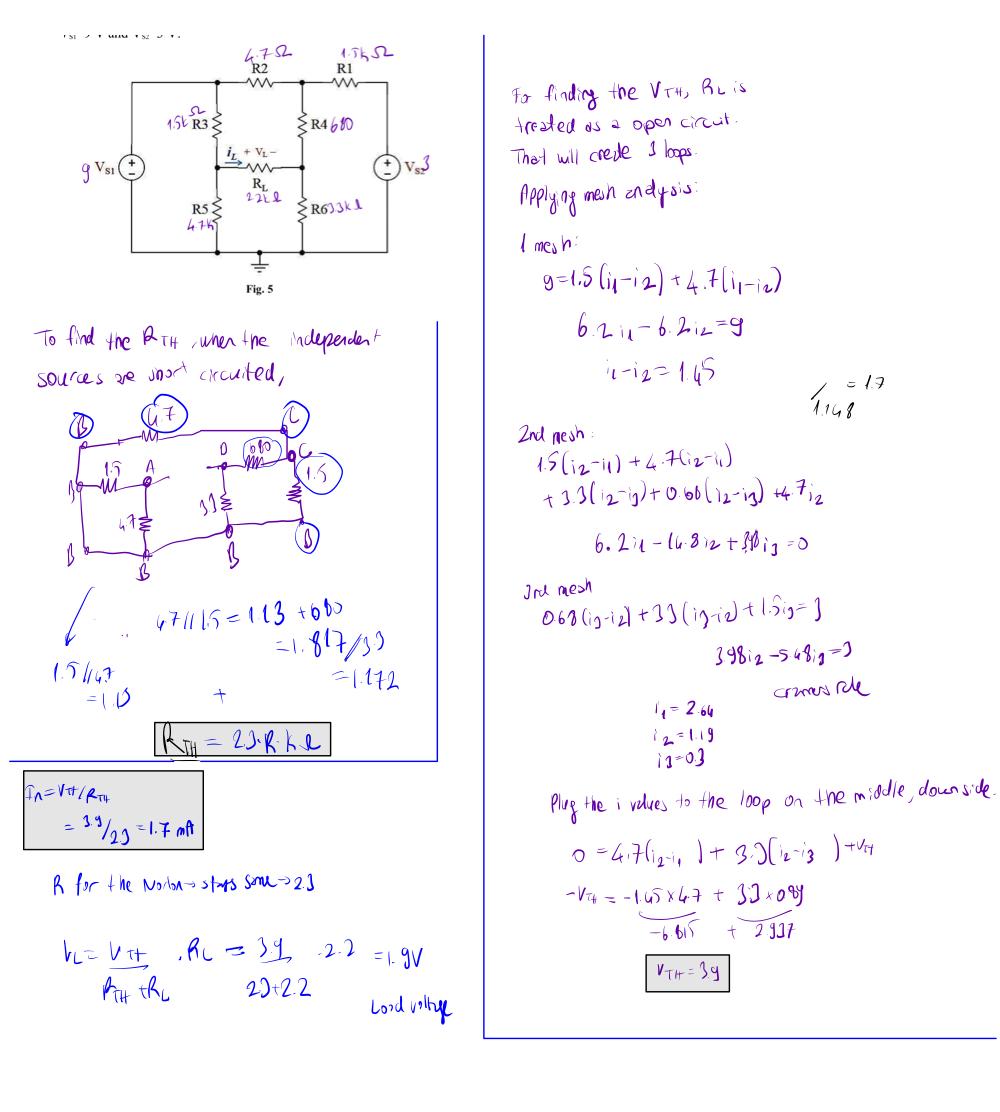 VS1=9 V and VS2=3 V.
4.7Ω
1.5kΩ
R2
R1
1.5kΩ
R3
R4 680
iL
+ VL −
9 VS1
VS2 3
RL
2.2kΩ
R5
4.7k
R6 3.3kΩ
Fig. 5
To find the RTH, when the independent
sources are short circuited,
B
4.7
C
1.5
A
D
680
C
1.5
B
3.3
4.7
B
B
B
B
4.7//1.5 = 1.13 + 680
= 1.817/3.3
= 1.172
1.5//4.7
= 1.13
+
RTH = 2.3 kΩ
In = VTH/RTH
= 3.9/2.3 = 1.7 mA
R for the Norton → stays same → 2.3
VL = VTH/RTH+RL . RL = 3.9/2.3+2.2 . 2.2 = 1.9V
Load voltage
For finding the VTH, RL is
treated as a open circuit.
That will create 3 loops.
Applying mesh analysis:
1 mesh:
9=1.5(i1-i2) + 4.7(i1-i2)
6.2 i1 - 6.2 i2 = 9
i1-i2 = 1.45
= 1.7
1.148
2nd mesh:
1.5(i2-i1) + 4.7(i2-i1)
+ 3.3(i2-i3) + 0.68(i2-i3) + 4.7 i2
6.2 i1 - 14.8 i2 + 3.98 i3 = 0
3rd mesh
0.68(i3-i2) + 3.3(i3-i2) + 1.5i3 = 3
3.98 i2 - 5.48 i3 = 3
cramers rule
i1 = 2.64
i2 = 1.19
i3 = 0.3
Plug the i values to the loop on the middle, down side.
0 = 4.7(i2-i1) + 3.3(i2-i3) + VTH
-VTH = -1.45 x 4.7 + 3.3 x 0.89
-6.815 + 2.937
VTH = 3.9